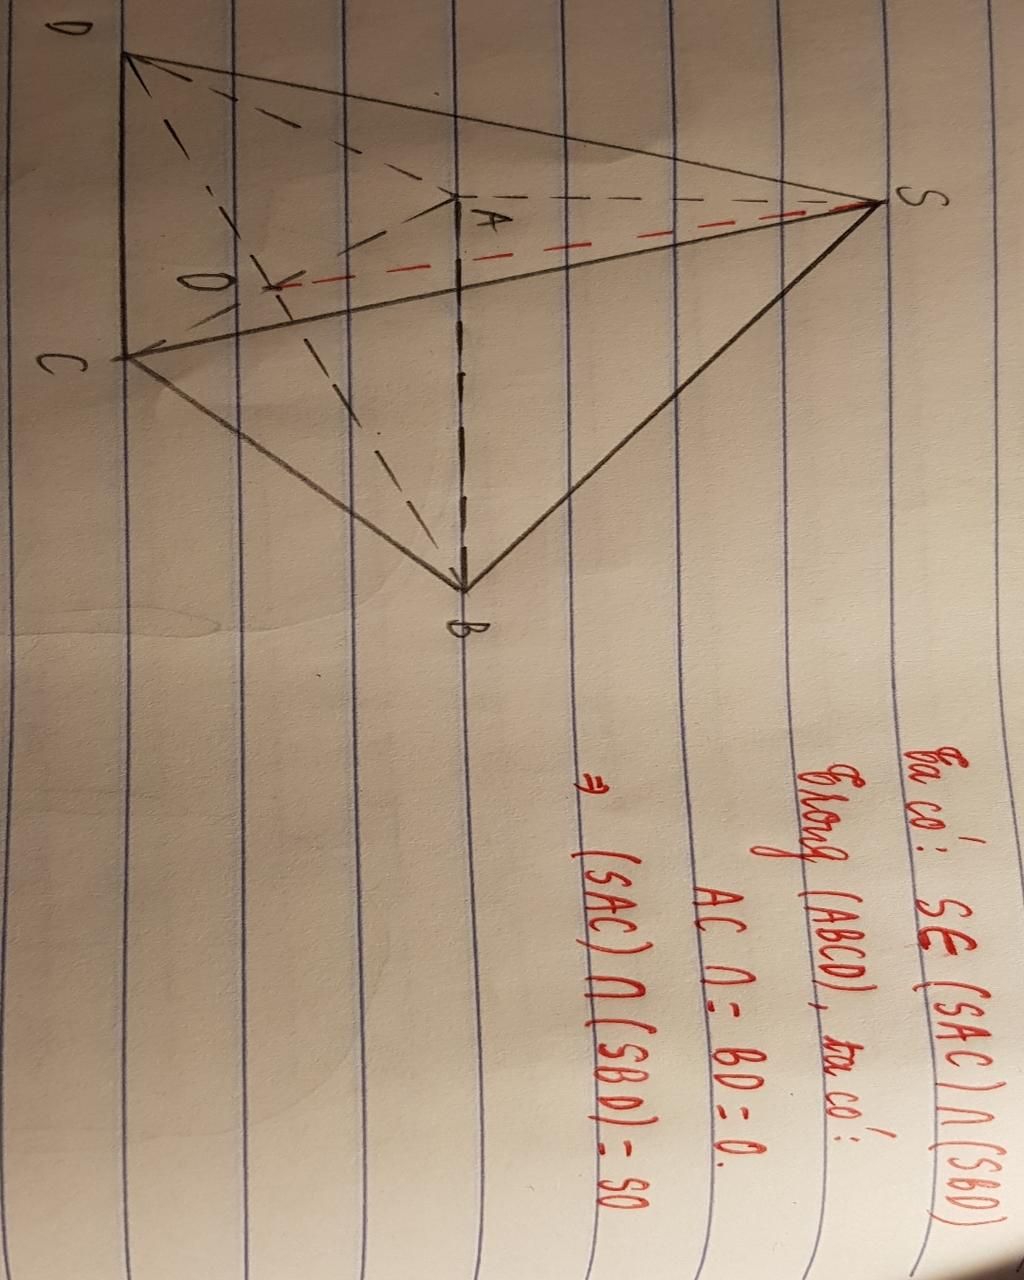 S
A
B
D
C
O
Ta có: S∈ (SAC) ∩ (SBD)
Trong (ABCD), ta có:
AC ∩= BD = O.
⇒ (SAC) ∩ (SBD) = SO